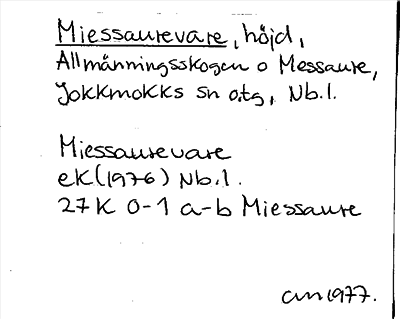 Miessaurevare, höjd,
Allmänningsskogen o Messaure,
Jokkmokks sn o.tg, Nb.l.
Miessaurevare
ek(1976) Nb.l.
27K 0-1 a-b Miessaure
am1977.